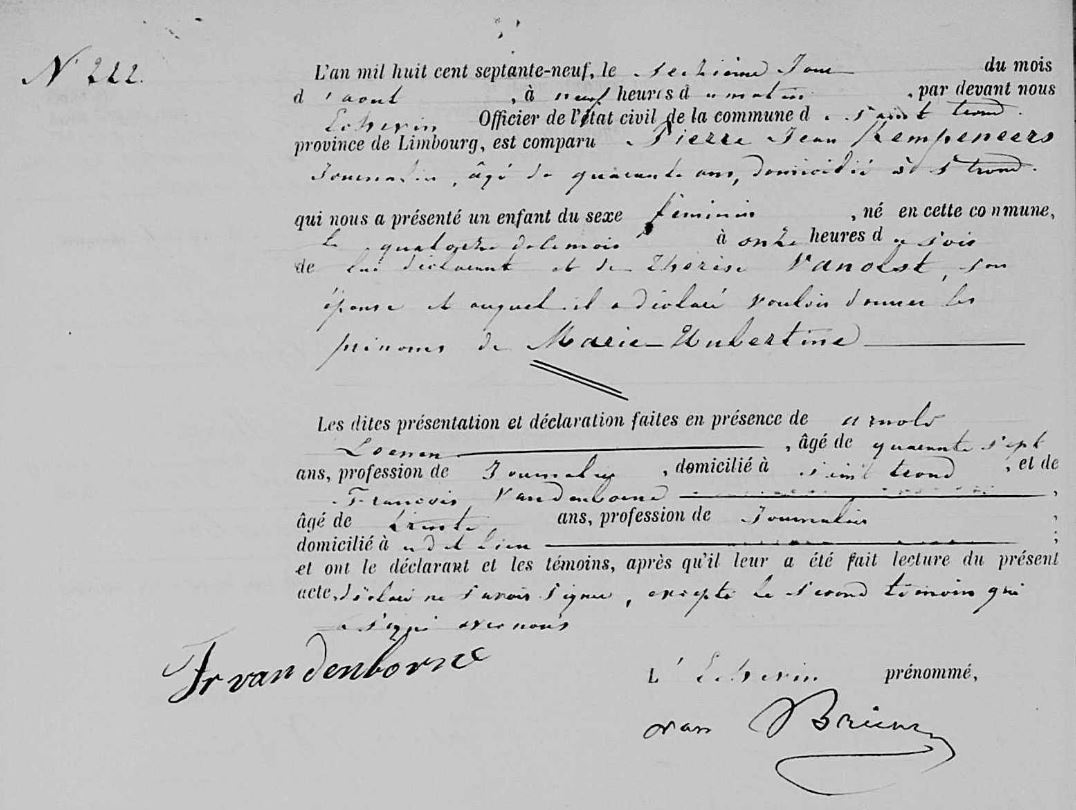 N 222.
L'an mil huit cent septante-neuf, le seizième Jour du mois
d'aout, à neuf heures du matin, par devant nous
Echevin Officier de l'état civil de la commune de saint trond
province de Limbourg, est comparu Pierre Jean Kempeneers
Journalier, âgé de quarante ans, domicilié à St trond.
qui nous a présenté un enfant du sexe féminin, né en cette commune,
le quatorze de le mois à onze heures du soir
de lui déclarant et de Thérèse Vanoelst, son
épouse et auquel il a déclaré vouloir donner les
prénoms de Marie-Hubertine
Les dites présentation et déclaration faites en présence de arnold
Loenen, âgé de quarante sept
ans, profession de Journalier, domicilié à saint trond, et de
François Vandenborne,
âgé de trente, ans, profession de Journalier,
domicilié à udit lieu;
et ont le déclarant et les témoins, après qu'il leur a été fait lecture du présent
acte, déclaré ne savoir signer, excepté le second témoin qui
a signé avec nous
Fr vandenborne
L'Echevin prénommé,
van